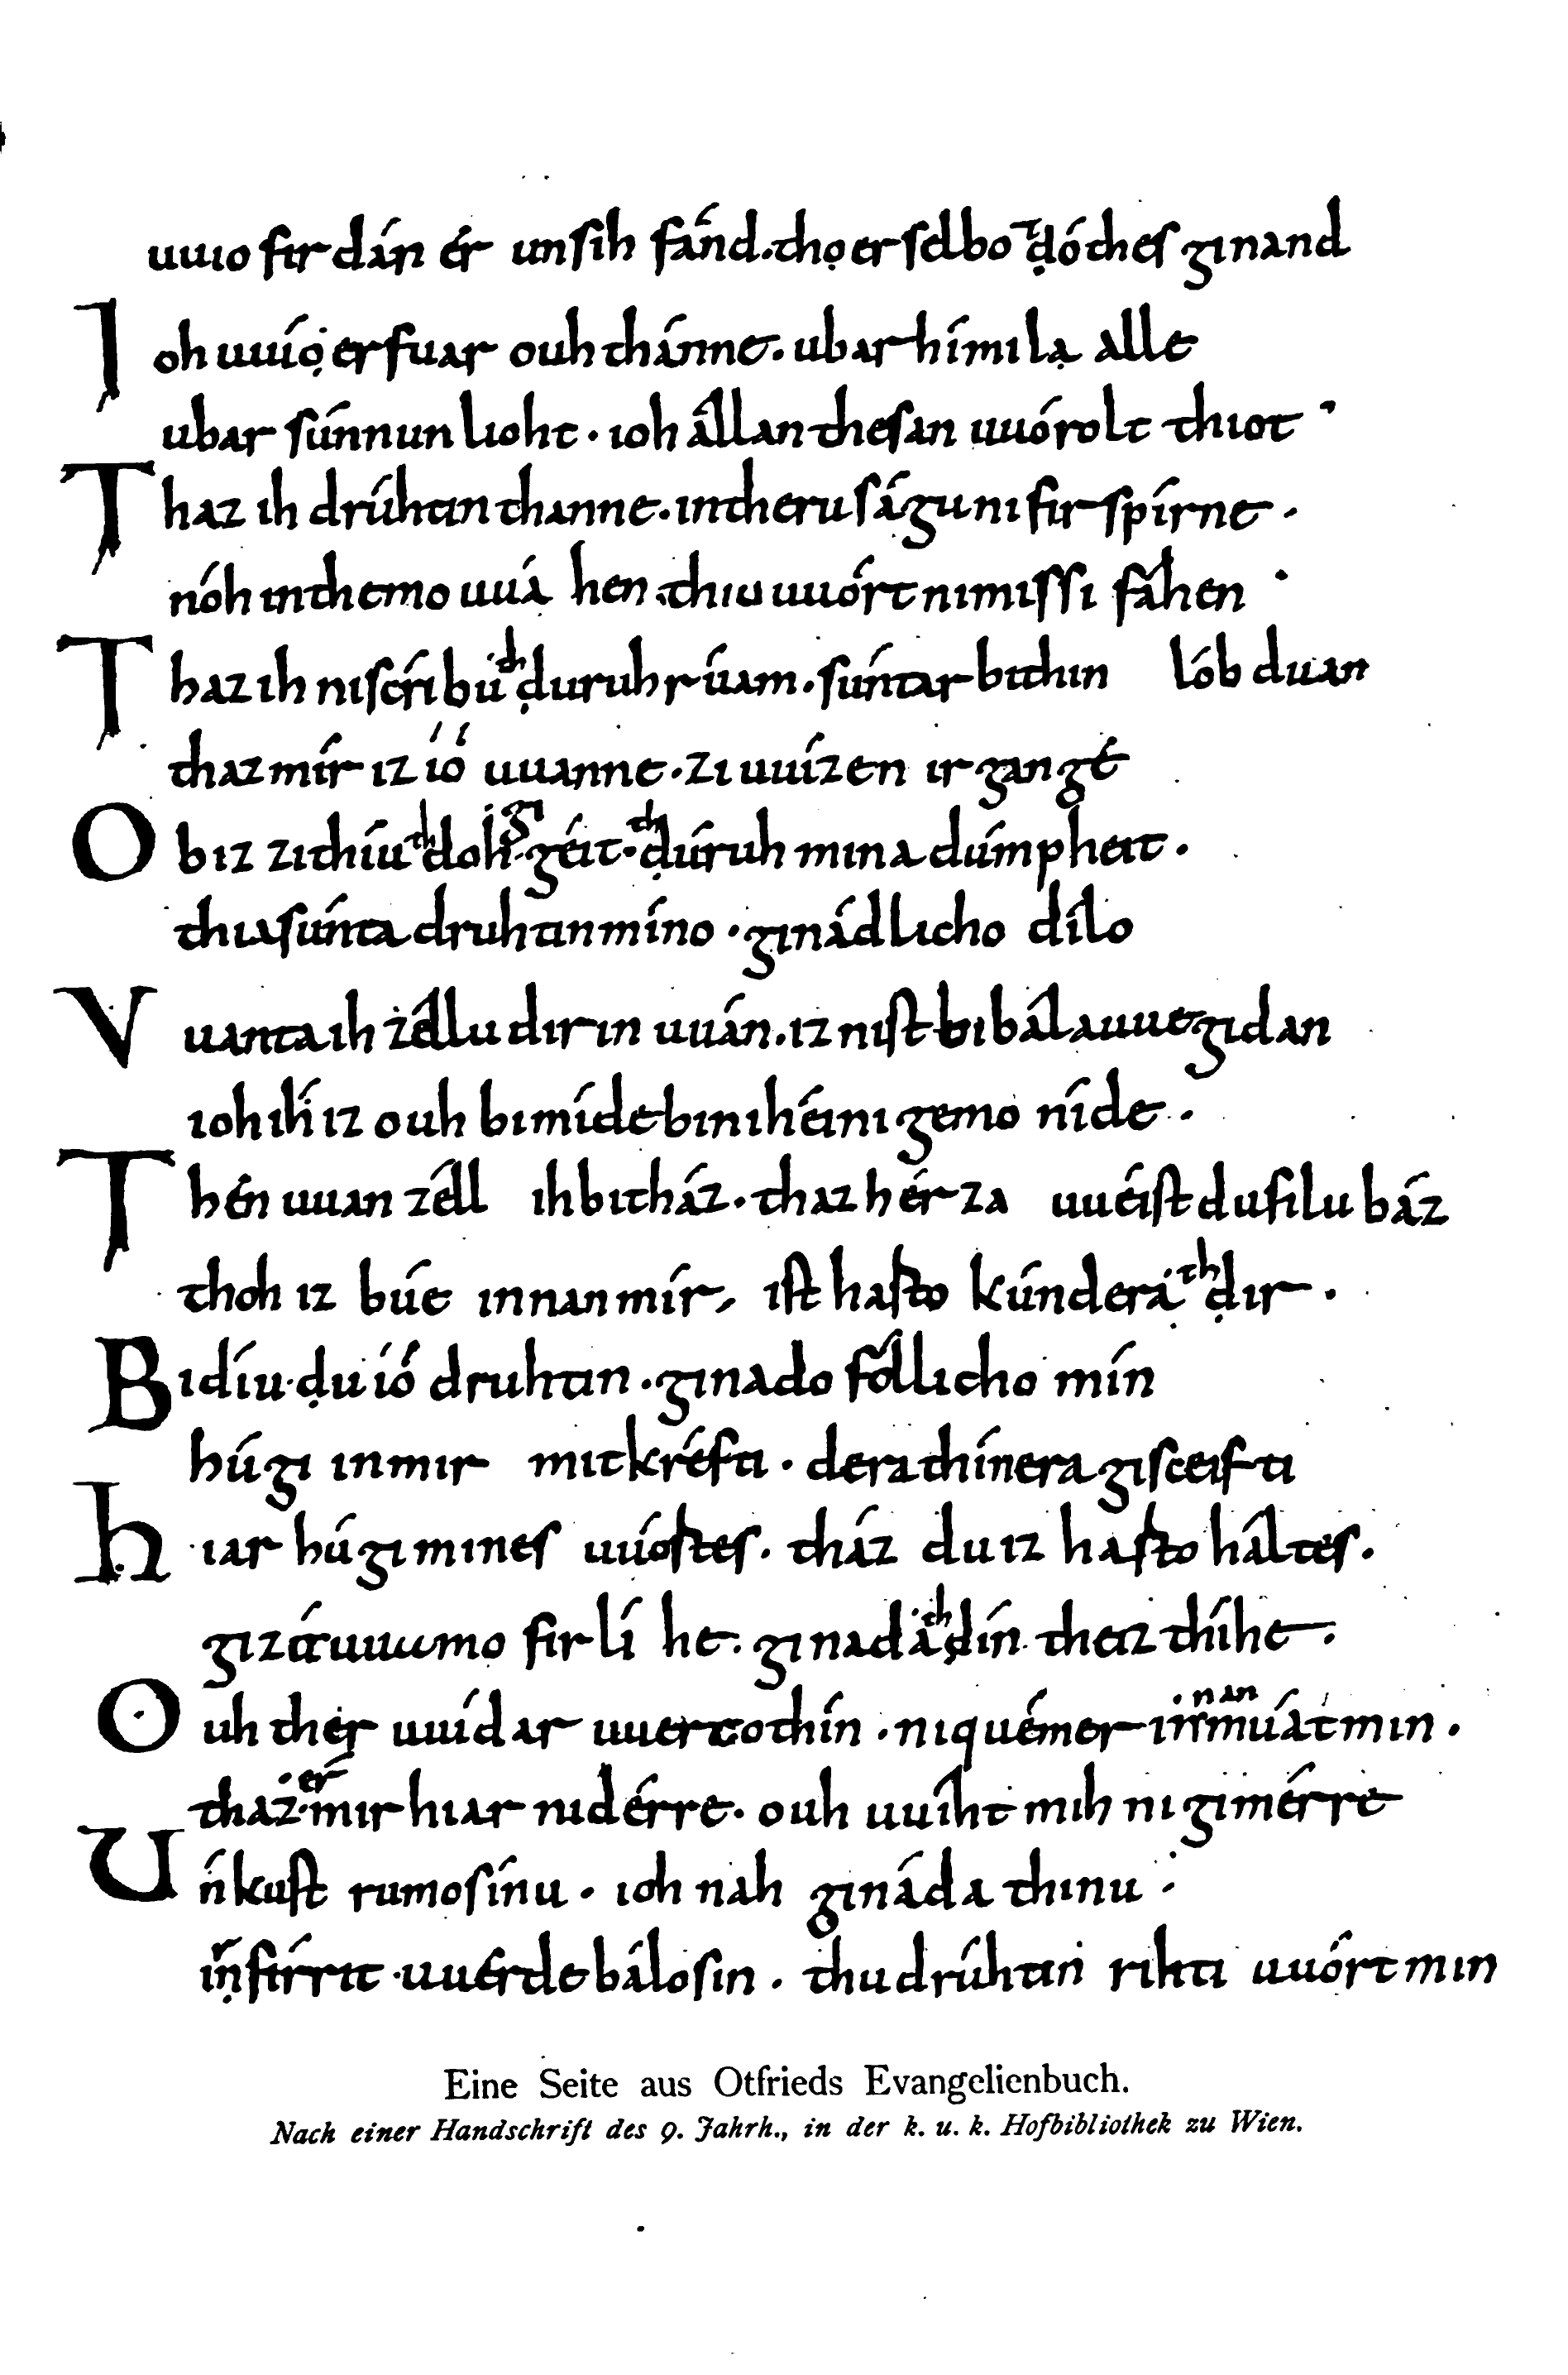 uuıo fır dán ér unsih fánd. thọ er selbo ᵗḍóthes gınand
Ioh uuíọ er fuar ouh thánne. ubar hímılạ alle
ubar súnnun lıoht. ıoh állan thesan uuórolt thıot
Thaz ıh drúhtın thanne. ın theru ságu nı fır spírne.
nóh ın themo uuá hen. thıu uuórt nı mıssı fáhen
Thaz ıh nı scríbu ᵗʰḍuruh rúam. súntar bı thın lób duan
thaz mír ız íó uuanne. zı uuízen ır gangé
Ob ız zı thíu ᵗʰdoh ᵍⁱgéıt. ᵗʰḍúruh mına dúmpheıt.
thıa súnta druhtın míno. gınádlıcho dílo
Vuanta ıh zéllu dır ın uuán. ız nıst bı bálauue gıdan
ıoh ıh íz ouh bımíde bı nıhéını gemo níde.
Thén uuan zéll ıh bı tház. thaz hérza uuéıst du fılu báz
thoh ız búe ınnan mír, ıst hafto kúndera ᵗʰḍır.
Bıdíu ḍu íó druhtın. gınado fóllıcho mín
húgı ın mır mıt kréftı. dera thínera gısceıftı
hıar húgı mınes uuórtes. tház du ız hafto háltes.
gızáuua mo fır lí he. gınada ᵗʰḍín theız thíhe.
Ouh ther uuídar uuerto thín. nı quémer ın ⁿᵃⁿ múat mın.
thaz ᵉʳ mır hıar nı dérre. ouh uuíht mıh nı gımérre
Unkust rumo sínu. ıoh nah gınáda thınu
ırṇfírrıt uuérde bálo sın. thu drúhtın rıhtı uuórt mın
Eine Seite aus Otfrieds Evangelienbuch.
Nach einer Handschrift des 9. Jahrh., in der k. u. k. Hofbibliothek zu Wien.